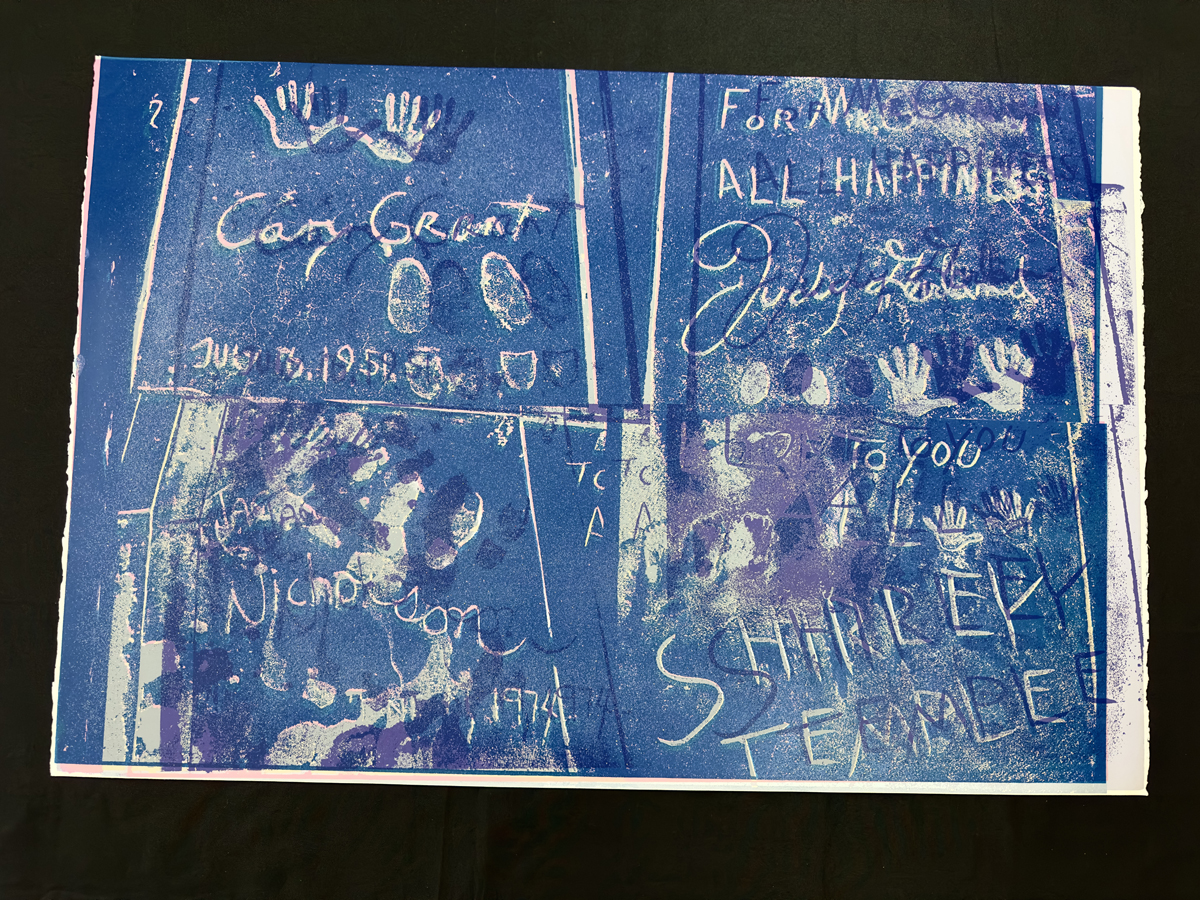 Cary Grant
JULY 16. 1951.
FOR Mr. Grauman
ALL HAPPINESS
Judy Garland
Nicholson
JUNE 1974
TO YOU
ALL
SHIRLEY
TEMPLE